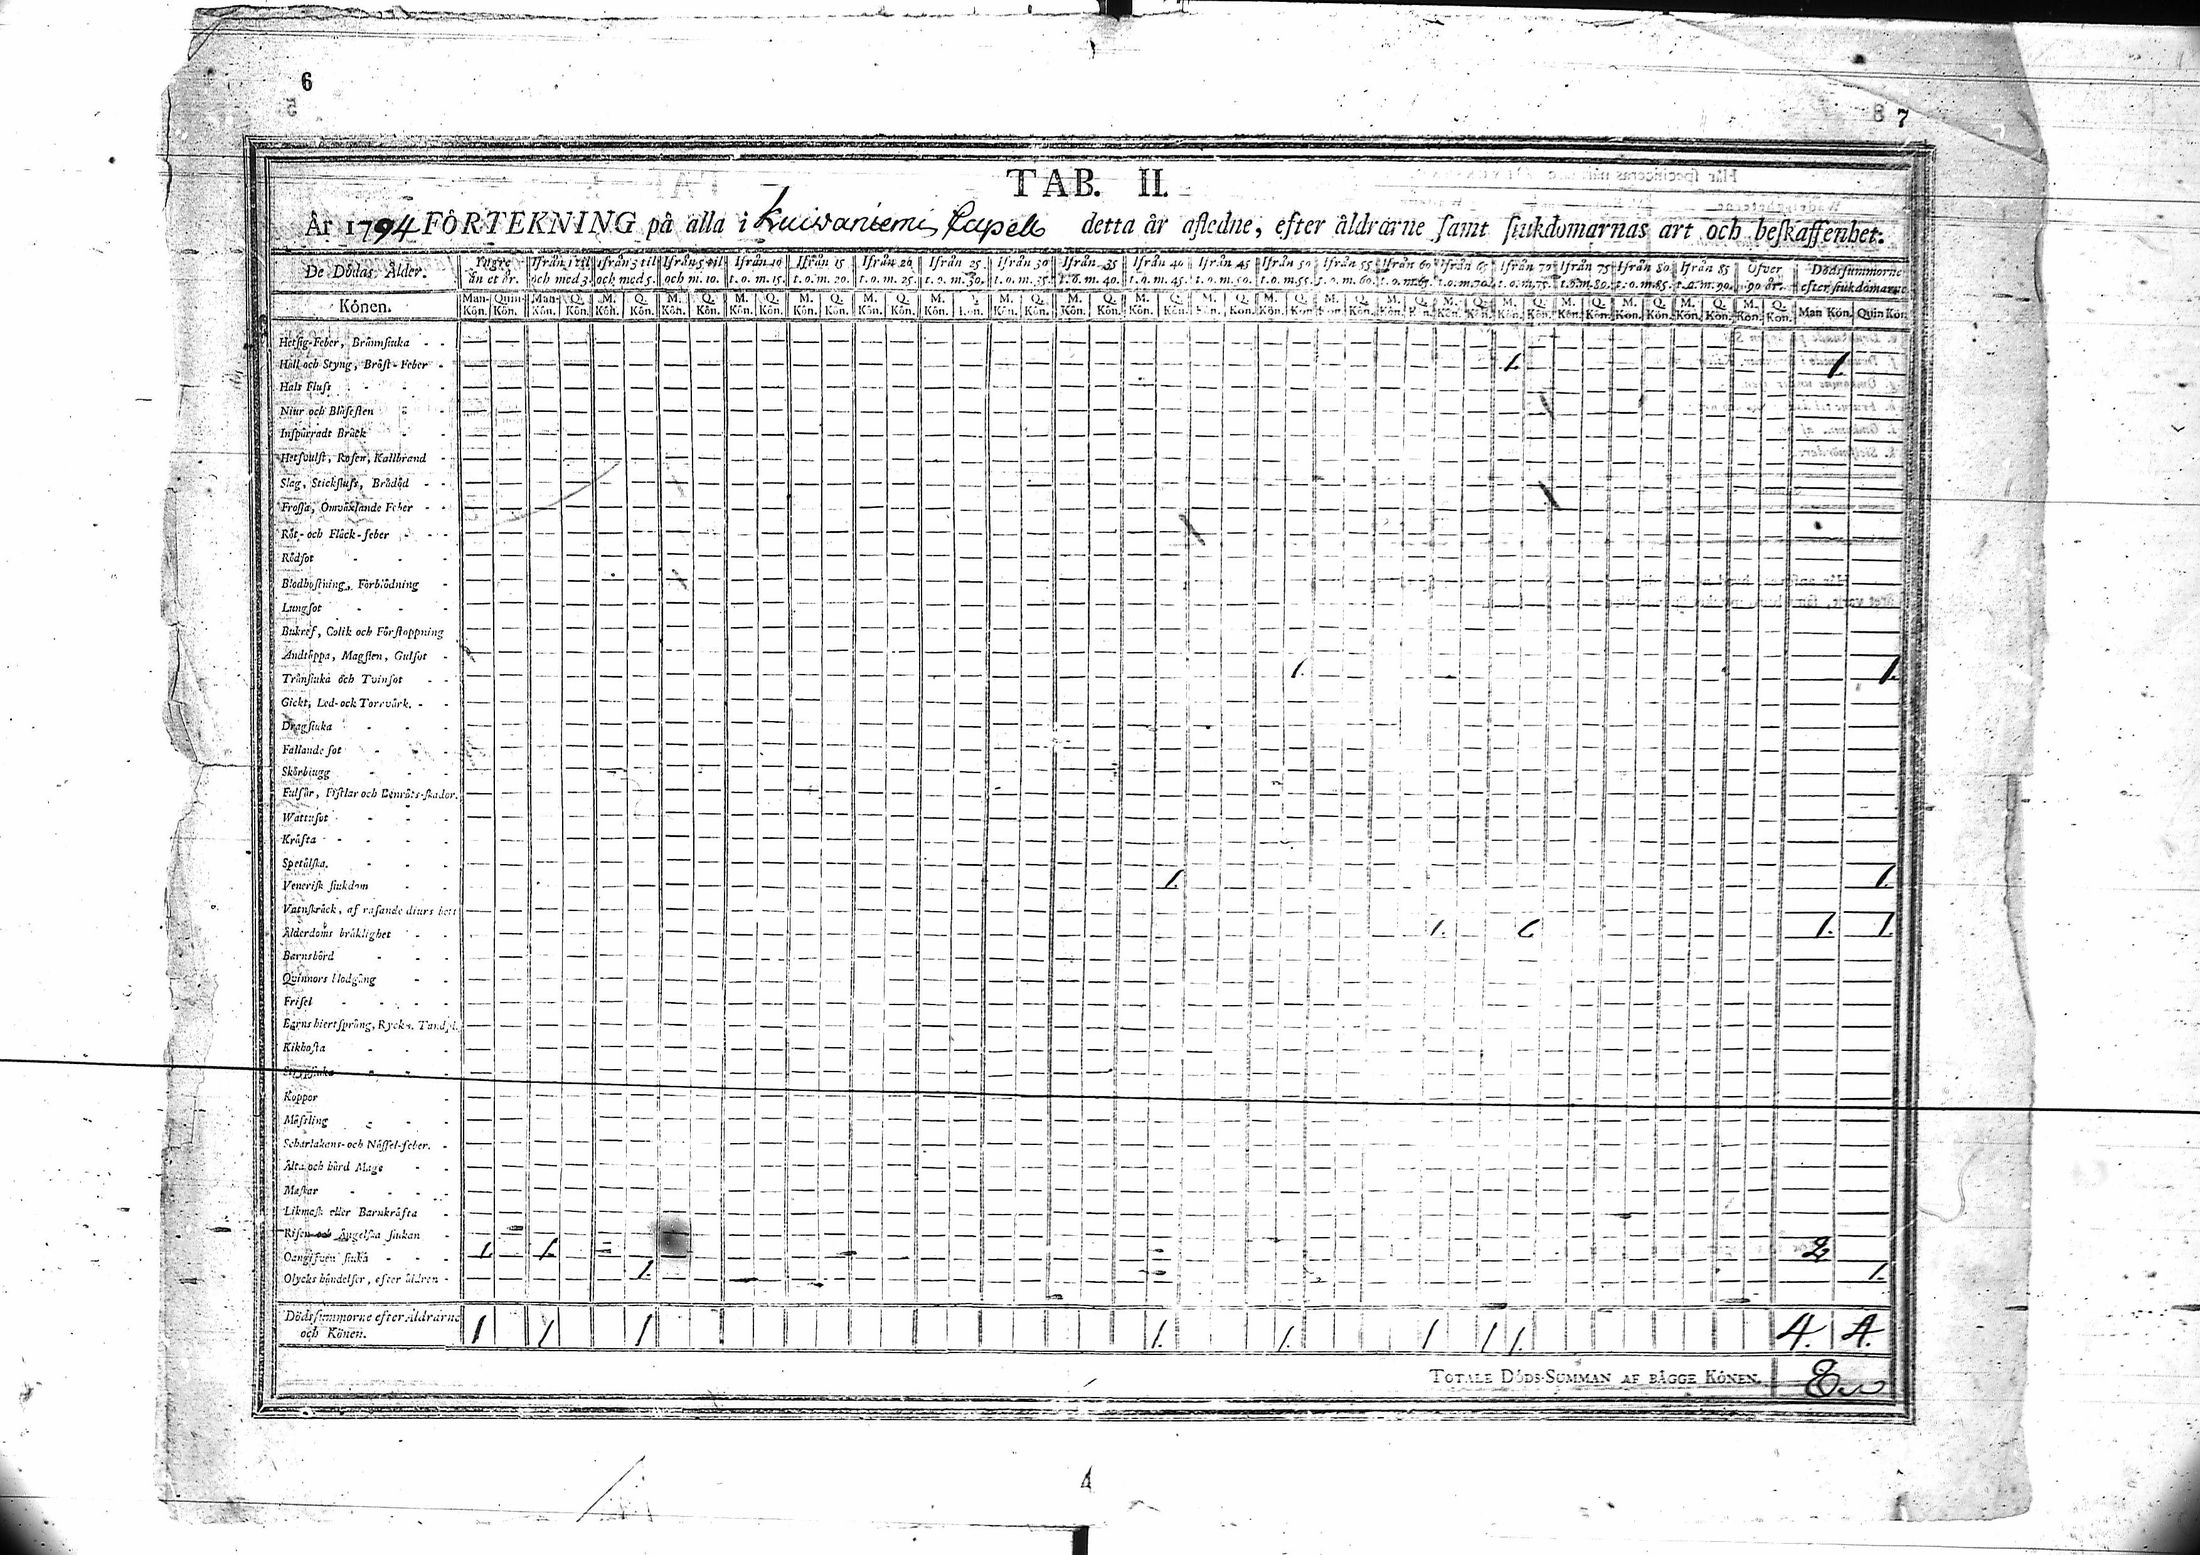 6
5
8 7
TAB. II.
År 1794 FÖRTEKNING på alla i Kuivaniemi Capell detta år afledne, efter åldrarne samt siukdomarnas art och beskaffenhet.
De Dödas Ålder. Yngre än et år. Ifrån 1 til och med 3. Ifrån 3 til och med 5. Ifrån 5 til och m. 10. Ifrån 10 t. o. m. 15. Ifrån 15 t. o. m. 20. Ifrån 20 t. o. m. 25. Ifrån 25 t. o. m. 30. Ifrån 30 t. o. m. 35. Ifrån 35 t. o. m. 40. Ifrån 40 t. o. m. 45. Ifrån 45 t. o. m. 50. Ifrån 50 t. o. m. 55. Ifrån 55 t. o. m. 60. Ifrån 60 t. o. m. 65. Ifrån 65 t. o. m. 70. Ifrån 70 t. o. m. 75. Ifrån 75 t. o. m. 80. Ifrån 80 t. o. m. 85. Ifrån 85 t. o. m. 90. Öfver 90 år. Dödssummorne efter siukdomarne
Könen. Man-Kön. Quin-Kön. Man-Kön. Q. Kön. M. Kön. Q. Kön. M. Kön. Q. Kön. M. Kön. Q. Kön. M. Kön. Q. Kön. M. Kön. Q. Kön. M. Kön. Q. Kön. M. Kön. Q. Kön. M. Kön. Q. Kön. M. Kön. Q. Kön. M. Kön. Q. Kön. M. Kön. Q. Kön. M. Kön. Q. Kön. M. Kön. Q. Kön. M. Kön. Q. Kön. M. Kön. Q. Kön. M. Kön. Q. Kön. M. Kön. Q. Kön. M. Kön. Q. Kön. M. Kön. Q. Kön. Man Kön. Quin Kön.
Hetsig-Feber, Brännsiuka
Håll och Styng, Bröst-Feber 1. 1.
Hals Fluss
Niur och Blåsesten
Inspärradt Bråck
Hetsvulst, Rosen, Kallbrand
Slag, Stickfluss, Brådöd
Frossa, Omväxlande Feber
Röt- och Fläck-feber
Rödsot
Blodhostning, Förblödning
Lungsot
Bukref, Colik och Förstoppning
Andtäppa, Magsten, Gulsot
Trånsiuka och Tvinsot 1. 1.
Gickt, Led- ock Torrvärk.
Dragsiuka
Fallande sot
Skörbiugg
Fulsår, Fistlar och Benröts-skador.
Wattusot
Kräfta
Spetälska.
Venerisk siukdom 1. 1.
Vatnskräck, af rasande diurs bett
Ålderdoms bräklighet 1. 1. 1. 1.
Barnsbörd
Quinnors blodgång
Frisel
Barns hiertsprång, Ryckn. Tandpl.
Kikhosta
Strypsiuka
Koppor
Mässling
Scharlakans- och Nässel-feber.
Älta och hård Mage
Maskar
Likmask eller Barnkräfta
Risen och Ängelska siukan
Oangifven siuka 1. 1. 2
Olycks händelser, efter åldren 1. 1.
Dödssummorne efter Åldrarne och Könen. 1 1 1 1. 1. 1 1 1. 4. 4.
TOTALE DÖDS-SUMMAN AF BÄGGE KÖNEN. 8
4